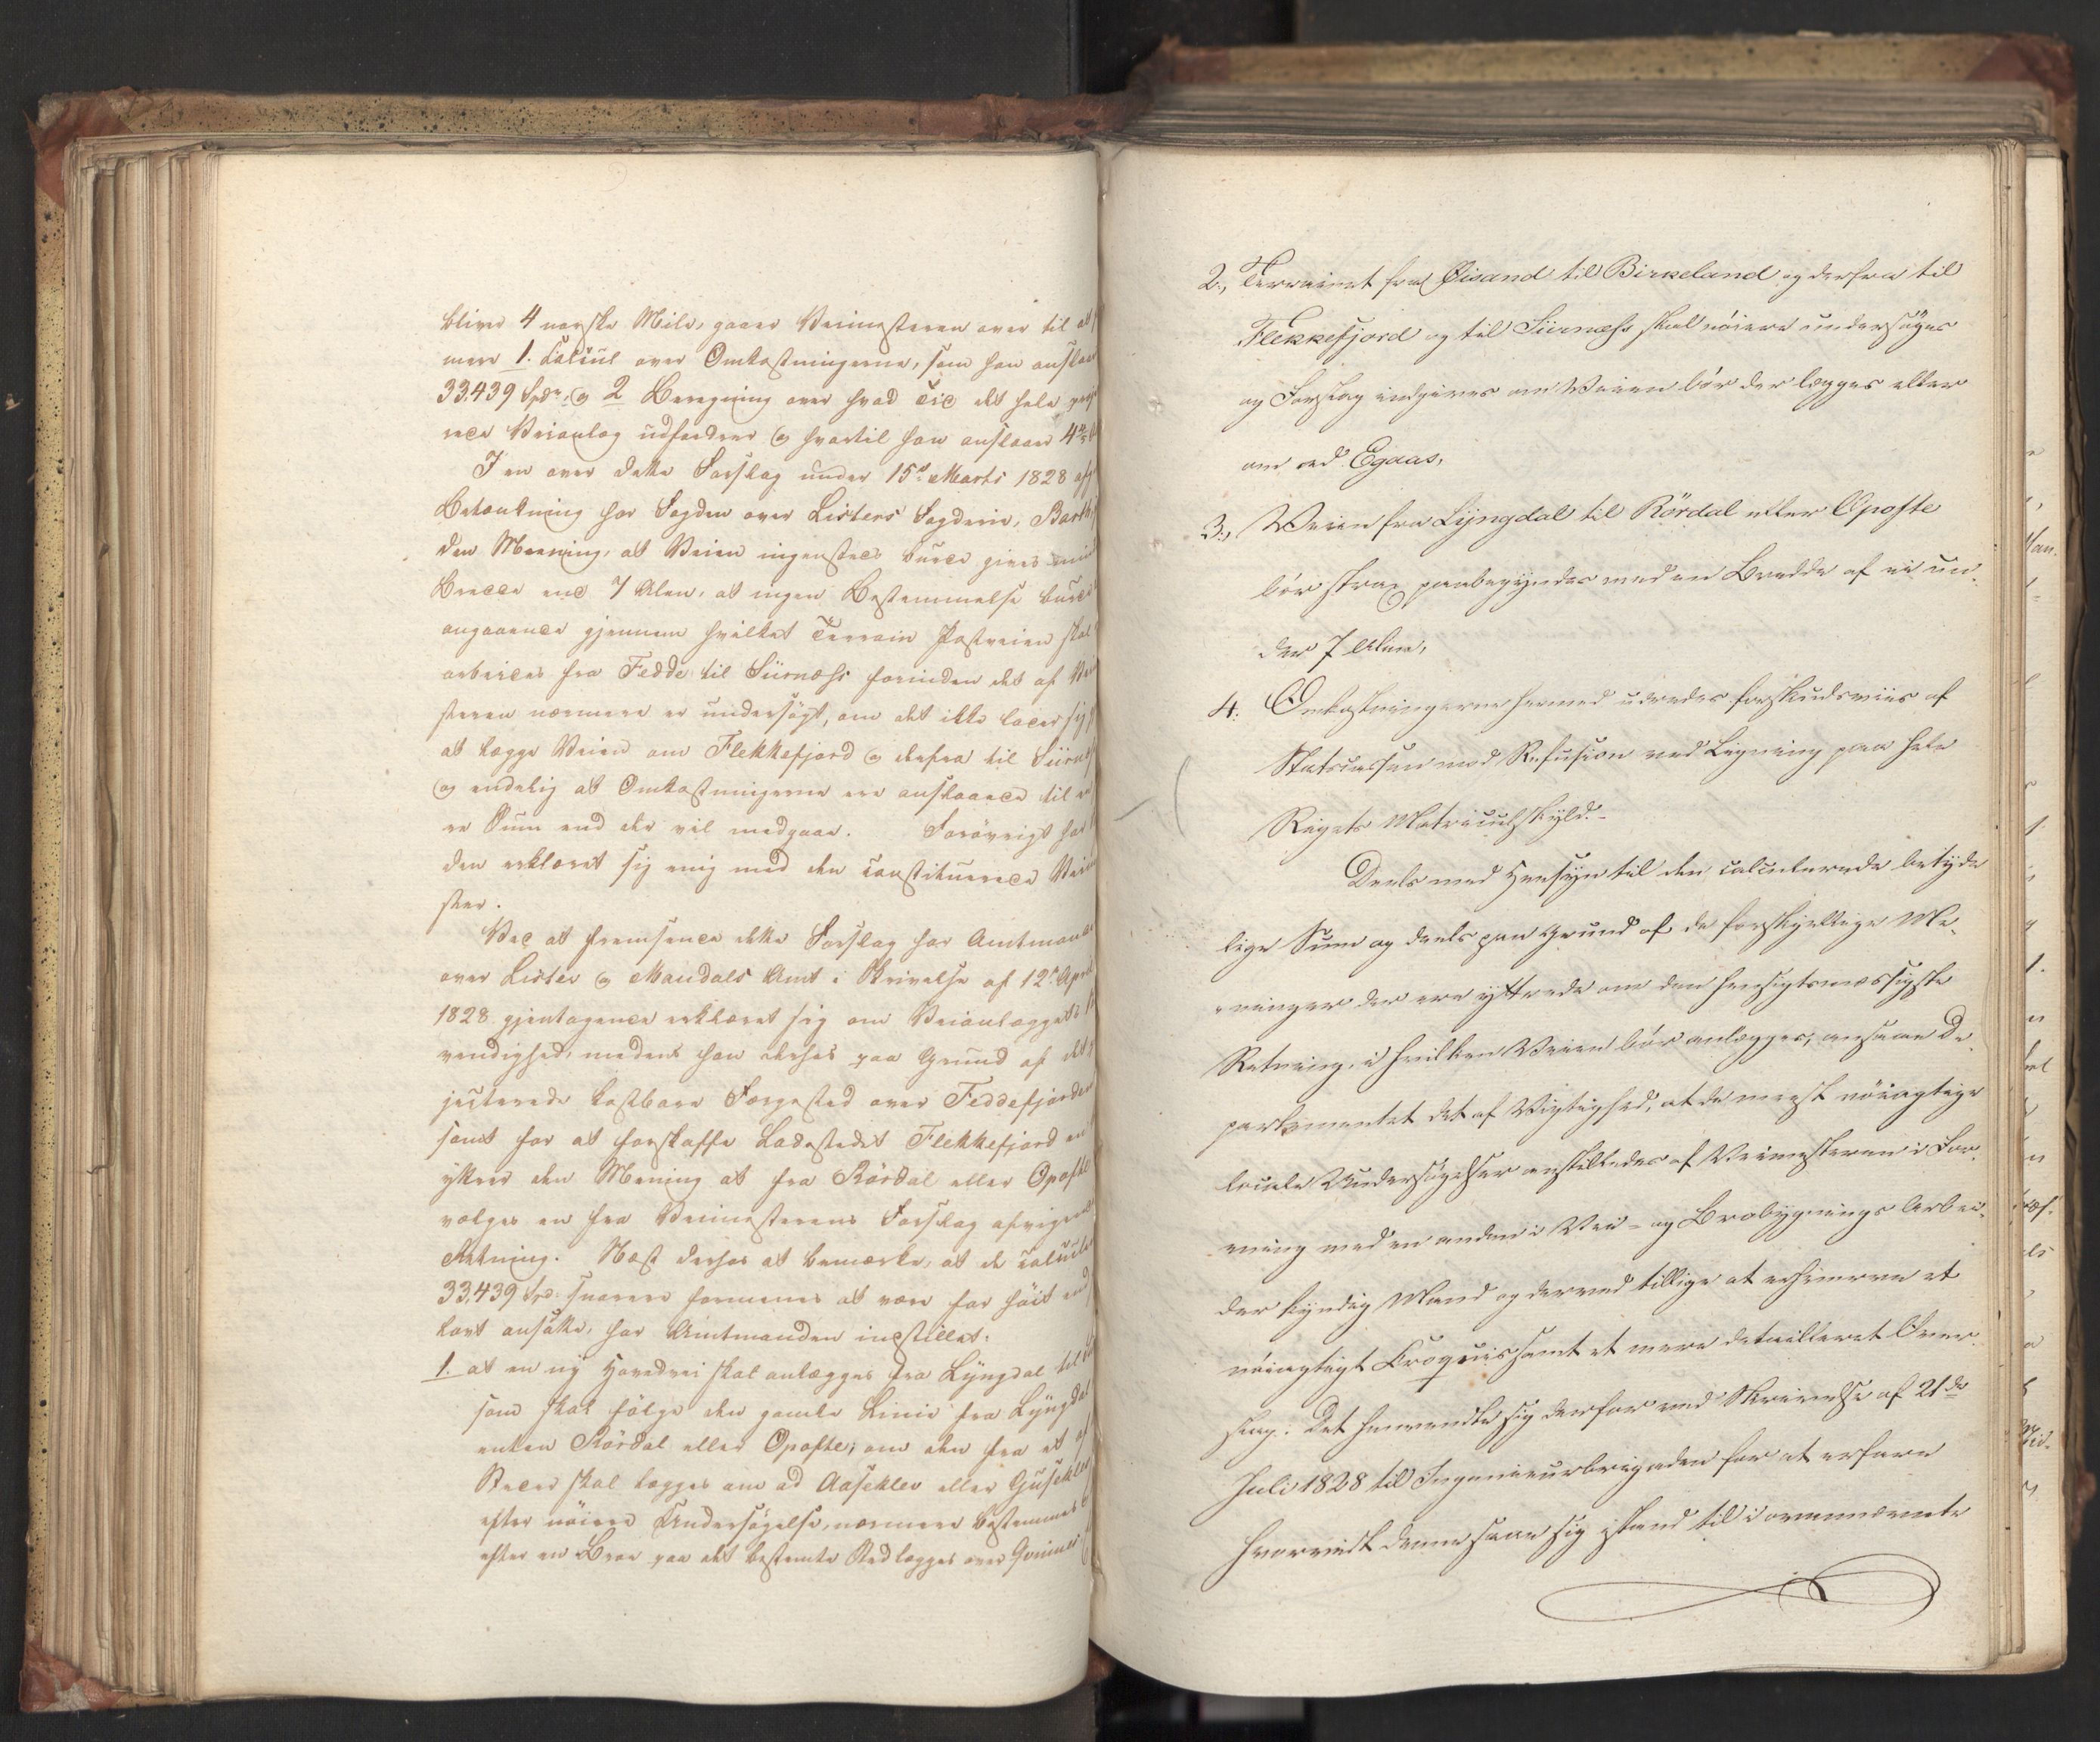 bliver 4 norske Mile, gaaer Veimesteren over til at
mere 1. Calcul over Omkostningerne, som han anslaaer
33,439 Spdr, og 2 Beregning over hvad Tid det hele
rede Veianlæg udfordrer og hvortil han anslaaer 4
I en over dette Forslag under 15de Marts 1828
Betænkning har Fogden over Listers Fogderie, Barth
den Meening, at Veien ingensteds burde gives
Bredde end 7 Alen, at ingen Bestemmelse burde
angaaende gjennem hvilket Terrain Postveien skal
arbeides fra Fedde til Siirnæss forinden det af Vei
steren nærmere er undersögt, om det ikke lader sig
at lægge Veien om Flekkefjord og derfra til Siirnæs
og endelig at Omkostningerne ere anslaaede til
re Sum end der vil medgaae. Forövrigt har
den erklæret sig enig med den constituerede Veime
ster.
Ved at fremsende dette Forslag har Amtmanden
over Lister og Mandals Amt i Skrivelse af 12te April
1828 gjentagende erklæret sig om Veianlæggets
vendighed, medens han derhos paa Grund af det
jecterede kostbare Færgested over Feddefjorden
samt for at forskaffe Ladestedet Flekkefjord en
yttrer den Mening at fra Rördal eller Opofte
vælges en fra Veimesterens Forslag afvigende
Retning. Næst derhos at bemærke, at de calculerede
33,439 Spd: snarere formenes at være for höit end
lavt ansatte, har Amtmanden indstillet:
1. at en ny Hovedvei skal anlægges fra Lyngdal til
som skal fölge den gamle Linie fra Lyngdal
enten Rördal eller Opofte; om den fra et af
Steder skal lægges om ad Aaseklev eller
efter nöiere Undersögelse, nærmere bestemmes
efter en Broe paa det bestemte Sted lægges over
2., Terrainet fra Öisand til Birkeland og derfra til
Flekkefjord og til Siirnæss skal nöiere undersöges
og Forslag indgives om Veien bör der lægges eller
om ad Egaas,
3., Veien fra Lyngdal til Rördal eller Opofte
bör strax paabegyndes med en Bredde af ei un-
der 7 Alen,
4. Omkostningerne hermed udredes forskudsviis af
Statscassen mod Refusion ved Ligning paa hele
Rigets Matriculskyld.-
Deels med Hensyn til den calculerede betyde
lige Sum og deels paa Grund af de forskjellige Me-
ninger der ere yttrede om den hensigtsmæssigste
Retning, i hvilken Veien bör anlægges, ansaae De-
partementet det af Vigtighed, at de meest nöiagtige
locale Undersögelser anstilledes af Veimesteren i For-
ening med en anden i Vei- og Brobygnings Arbei-
der kyndig Mand og derved tillige at erhverve et
nöiagtigt Croquis samt et mere detailleret Over-
slag. Det henvendte sig derfor ved Skrivelse af 21de
Juli 1828 til Ingenieurbrigaden for at erfare
hvorvidt denne saae sig istand til i ovennævnte